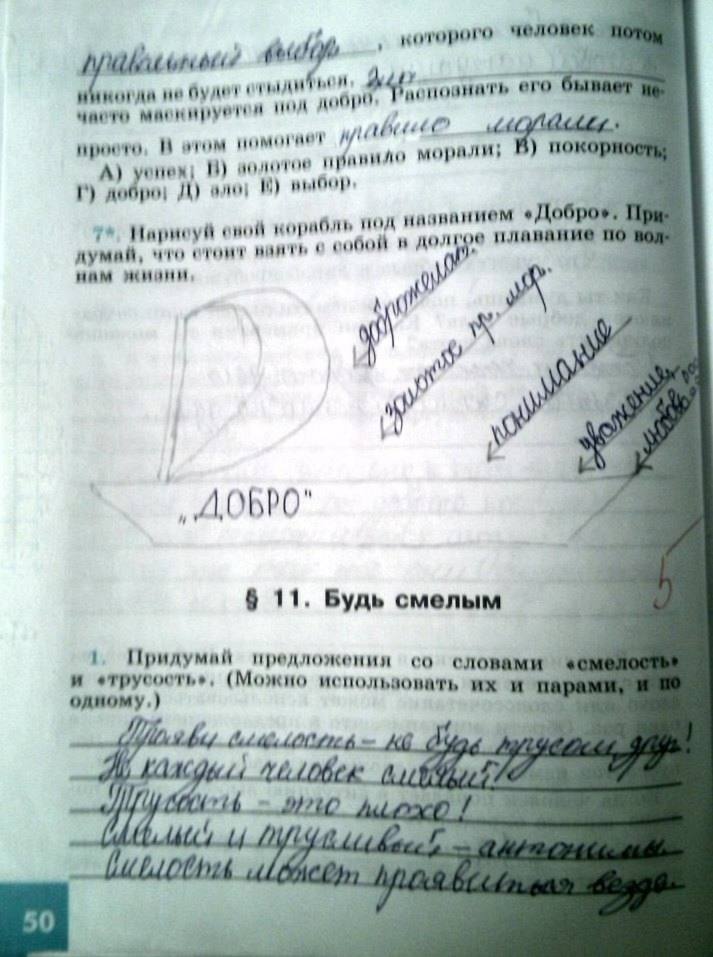 правильный выбор, которого человек потом
никогда не будет стыдиться. Зло
часто маскируется под добро. Распознать его бывает не-
просто. В этом помогает правило морали.
А) успех; Б) золотое правило морали; В) покорность;
Г) добро; Д) зло; Е) выбор.
7*. Нарисуй свой корабль под названием «Добро». При-
думай, что стоит взять с собой в долгое плавание по вол-
нам жизни.
доброжелат.
золотое пр. мор.
понимание
уважение,
любовь
„ДОБРО"
5
§ 11. Будь смелым
1. Придумай предложения со словами «смелость»
и «трусость». (Можно использовать их и парами, и по
одному.)
Прояви смелость – не будь трусом, друг!
Не каждый человек смелый!
Трусость – это плохо!
Смелый и трусливый – антонимы.
Смелость может проявиться везде.
50